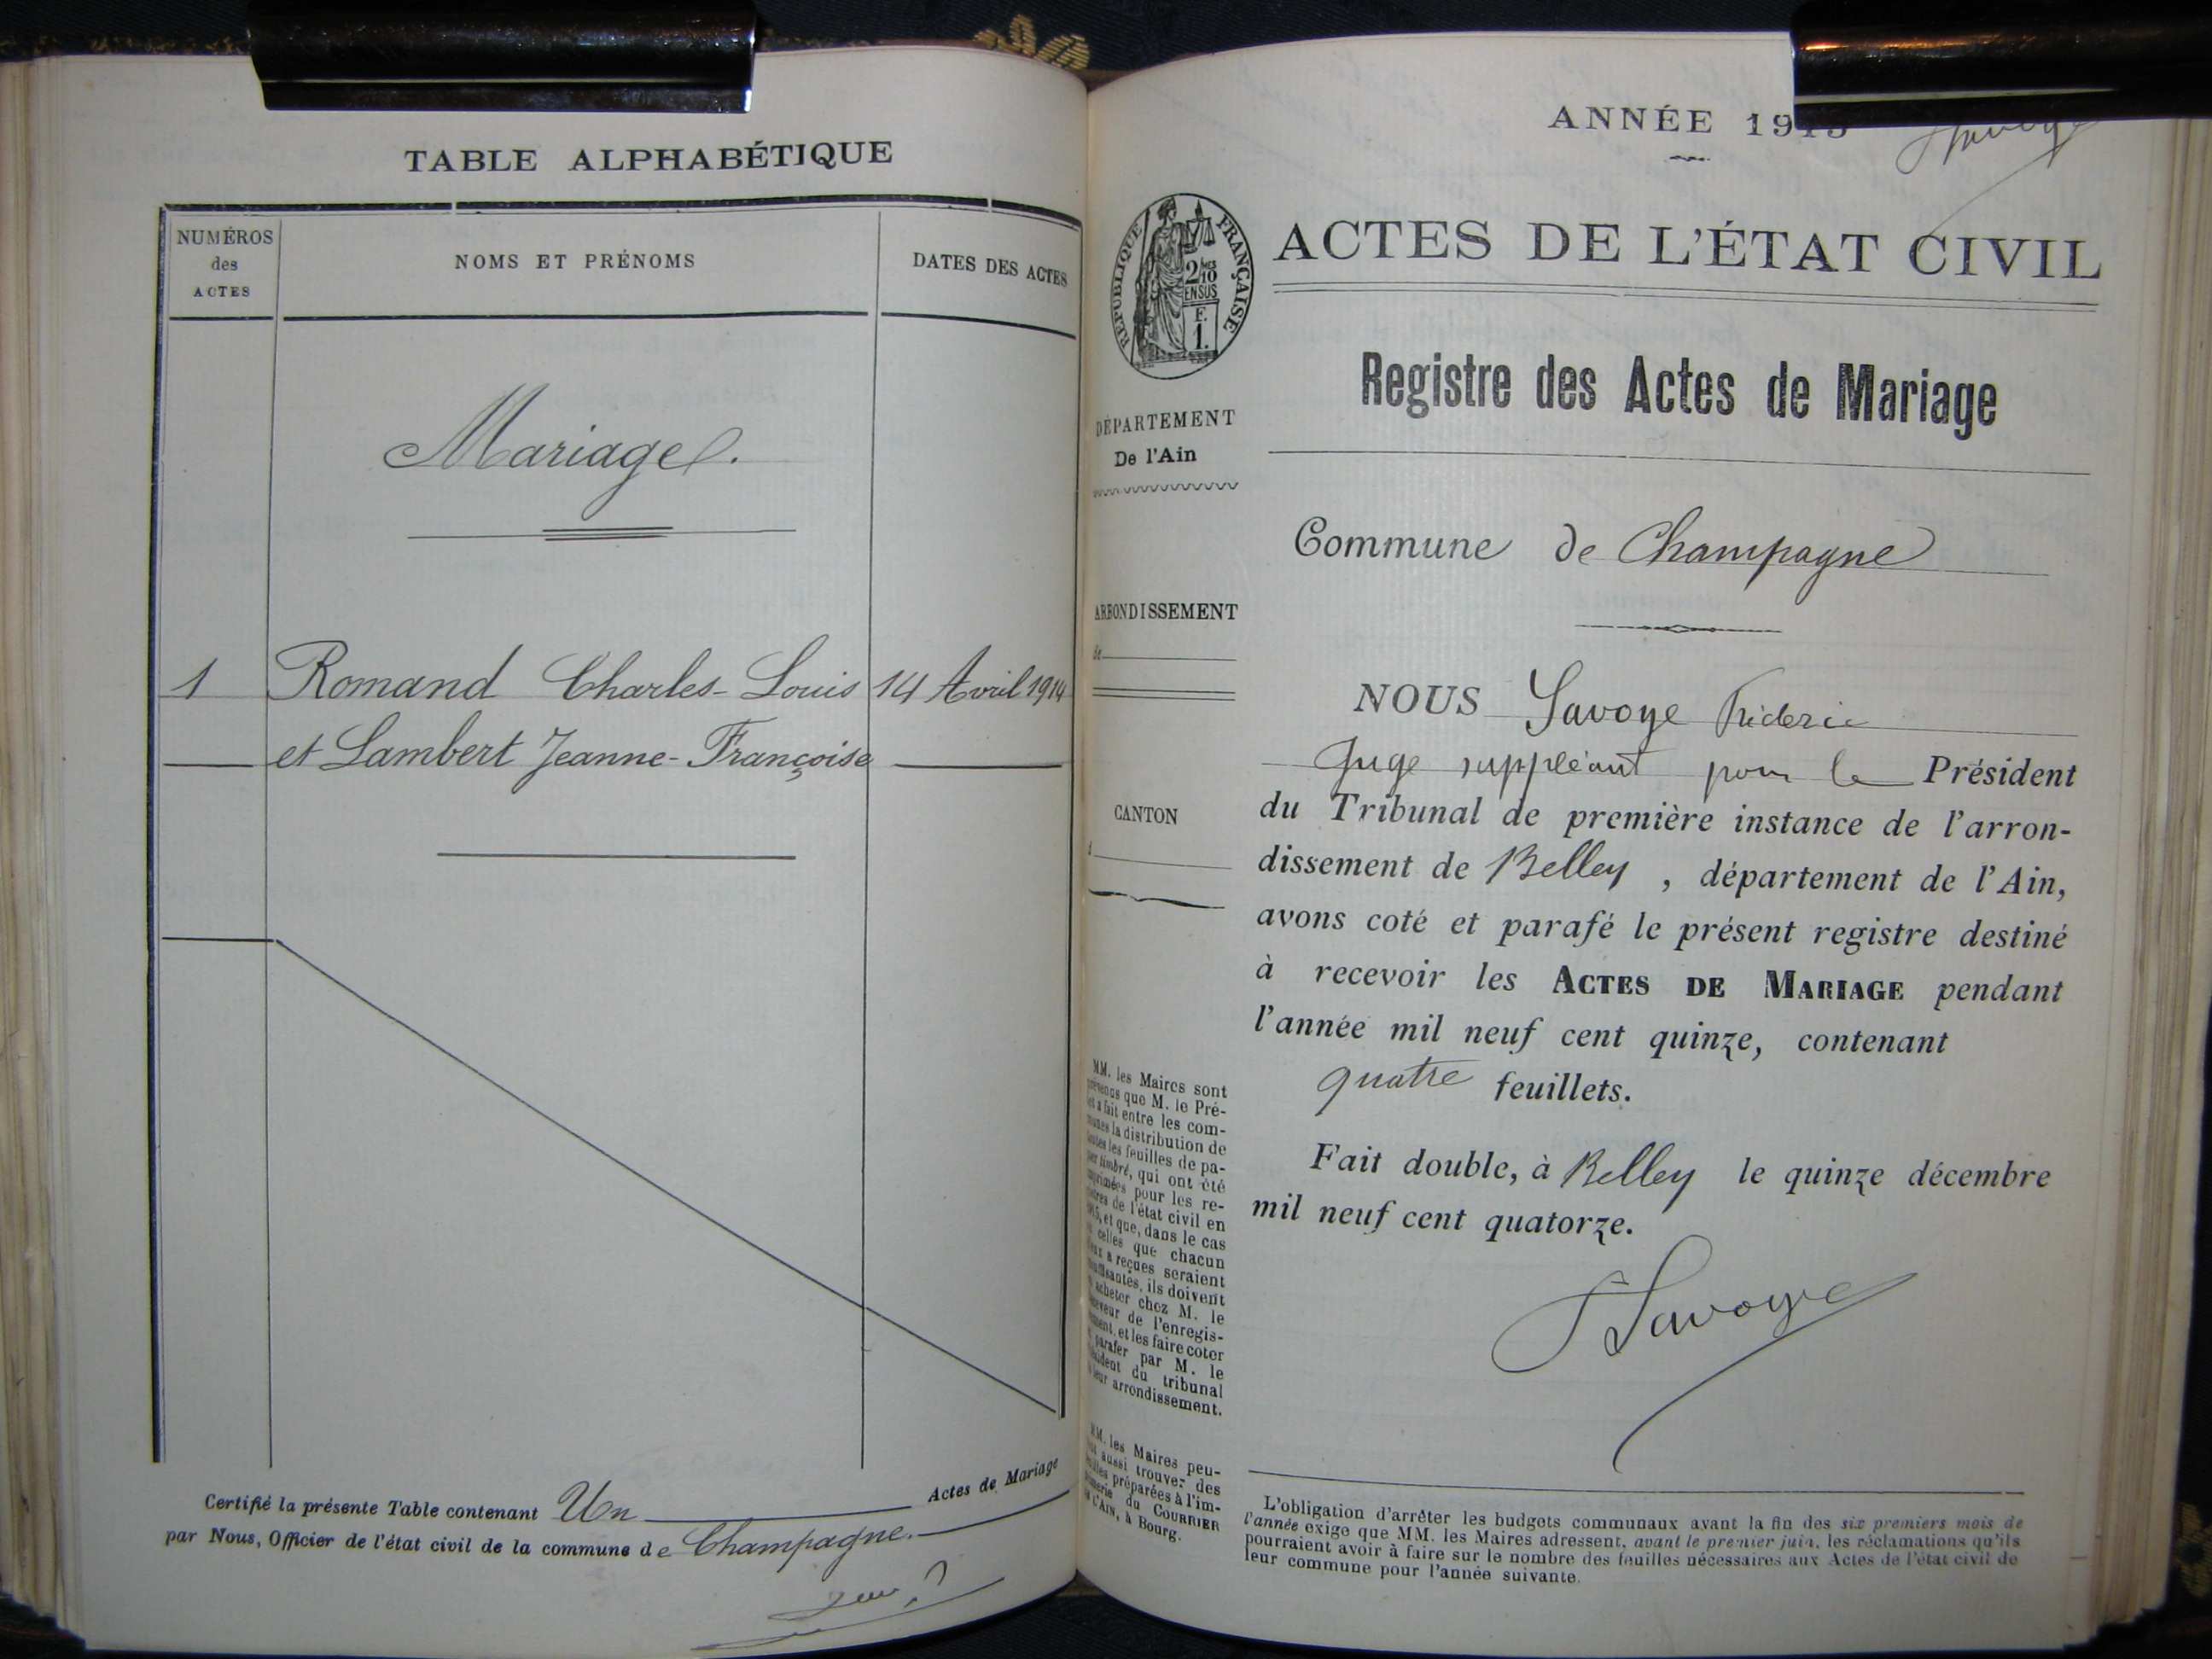 TABLE ALPHABÉTIQUE
NUMÉROS
des
ACTES
NOMS ET PRÉNOMS
DATES DES ACTES
Mariages.
1 Romand Charles-Louis 14 Avril 1914
et Lambert Jeanne-Françoise
Certifié la présente Table contenant Un Actes de Mariage
par Nous, Officier de l'état civil de la commune de Champagne.
ANNÉE 1915
RÉPUBLIQUE FRANÇAISE
2/10
EN SUS
F.
1.
ACTES DE L'ÉTAT CIVIL
Registre des Actes de Mariage
DÉPARTEMENT
De l'Ain
Commune de Champagne
ARRONDISSEMENT
de
CANTON
NOUS Savoye Fréderic
Juge suppléant pour le Président
du Tribunal de première instance de l'arron-
dissement de Belley, département de l'Ain,
avons coté et parafé le présent registre destiné
à recevoir les ACTES DE MARIAGE pendant
l'année mil neuf cent quinze, contenant
quatre feuillets.
Fait double, à Belley le quinze décembre
mil neuf cent quatorze.
Savoye
MM. les Maires sont
que M. le Pré-
a fait entre les com-
la distribution de
les feuilles de pa-
timbré, qui ont été
pour les re-
de l'état civil en
et que, dans le cas
celles que chacun
a reçues seraient
ils doivent
acheter chez M. le
de l'enregis-
et les faire coter
parafer par M. le
du tribunal
leur arrondissement.
MM. les Maires peu-
aussi trouver des
préparées à l'im-
du COURRIER
à Bourg.
L'obligation d'arrêter les budgets communaux avant la fin des six premiers mois de
l'année exige que MM. les Maires adressent, avant le premier juin, les réclamations qu'ils
pourraient avoir à faire sur le nombre des feuilles nécessaires aux Actes de l'état civil de
leur commune pour l'année suivante.